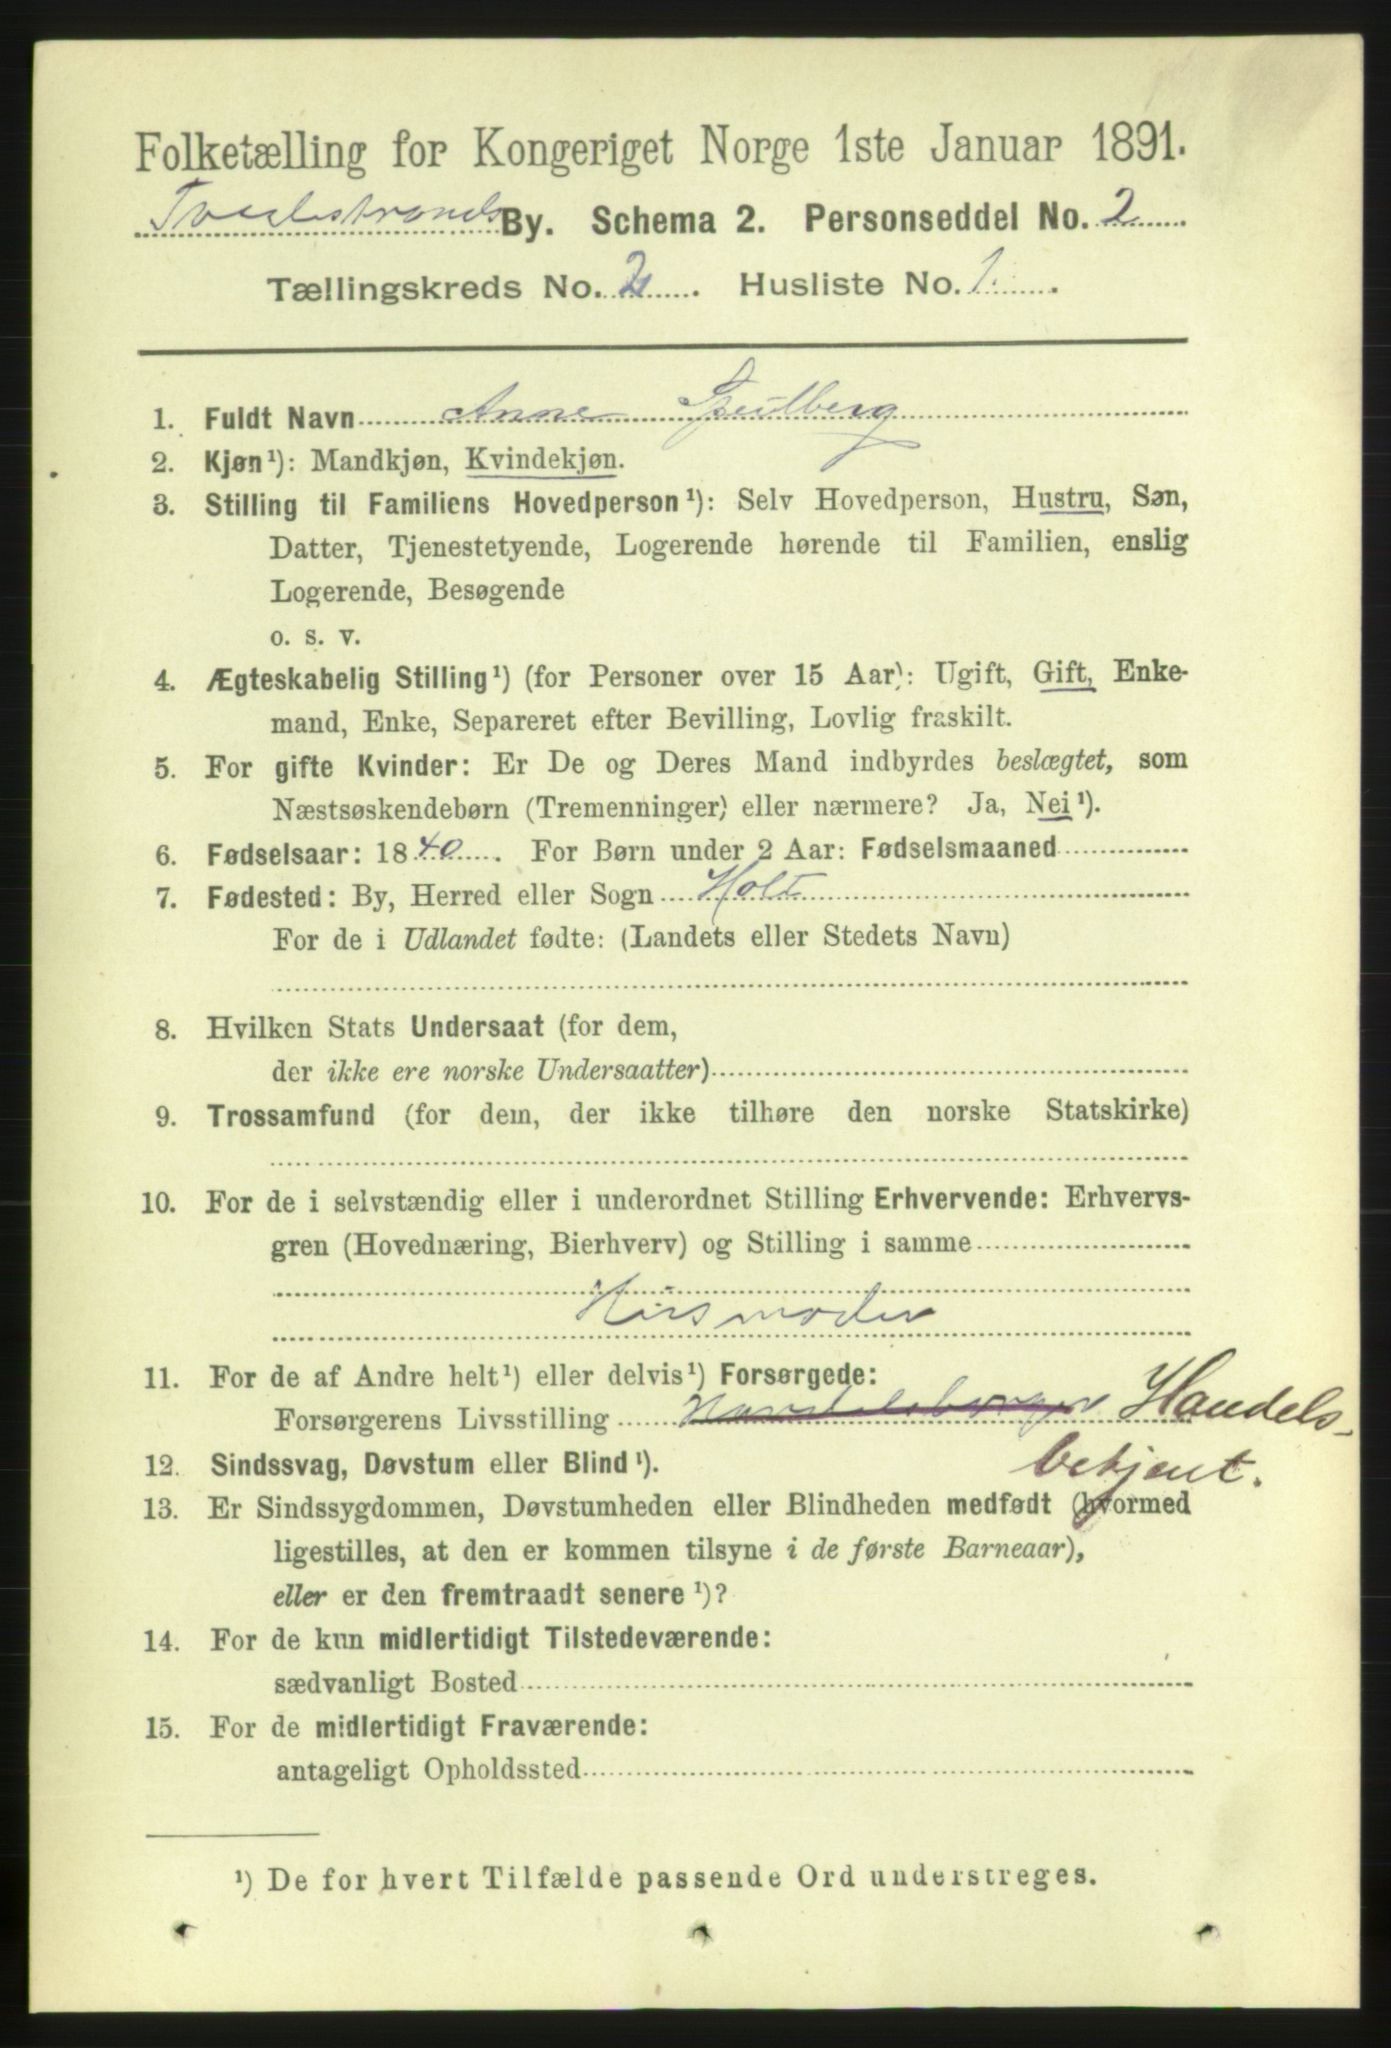 Folketælling for Kongeriget Norge 1ste Januar 1891.
Tvedestrands By. Schema 2. Personseddel No. 2
Tællingskreds No. 2. Husliste No. 1.
1. Fuldt Navn Anne
2. Kjøn¹): Mandkjøn, Kvindekjøn.
3. Stilling til Familiens Hovedperson¹): Selv Hovedperson, Hustru, Søn,
Datter, Tjenestetyende, Logerende hørende til Familien, enslig
Logerende, Besøgende
o. s. v.
4. Ægteskabelig Stilling¹) (for Personer over 15 Aar): Ugift, Gift, Enke-
mand, Enke, Separeret efter Bevilling, Lovlig fraskilt.
5. For gifte Kvinder: Er De og Deres Mand indbyrdes beslægtet, som
Næstsøskendebørn (Tremenninger) eller nærmere? Ja, Nei¹).
6. Fødselsaar: 1840. For Børn under 2 Aar: Fødselsmaaned
7. Fødested: By, Herred eller Sogn Holt
For de i Udlandet fødte: (Landets eller Stedets Navn)
8. Hvilken Stats Undersaat (for dem,
der ikke ere norske Undersaatter)
9. Trossamfund (for dem, der ikke tilhøre den norske Statskirke)
10. For de i selvstændig eller i underordnet Stilling Erhvervende: Erhvervs-
gren (Hovednæring, Bierhverv) og Stilling i samme
Husmoder
11. For de af Andre helt¹) eller delvis¹) Forsørgede:
Forsørgerens Livsstilling Handelsborger Handels-
betjent.
12. Sindssvag, Døvstum eller Blind¹).
13. Er Sindssygdommen, Døvstumheden eller Blindheden medfødt (hvormed
ligestilles, at den er kommen tilsyne i de første Barneaar),
eller er den fremtraadt senere¹)?
14. For de kun midlertidigt Tilstedeværende:
sædvanligt Bosted
15. For de midlertidigt Fraværende:
antageligt Opholdssted
¹) De for hvert Tilfælde passende Ord understreges.